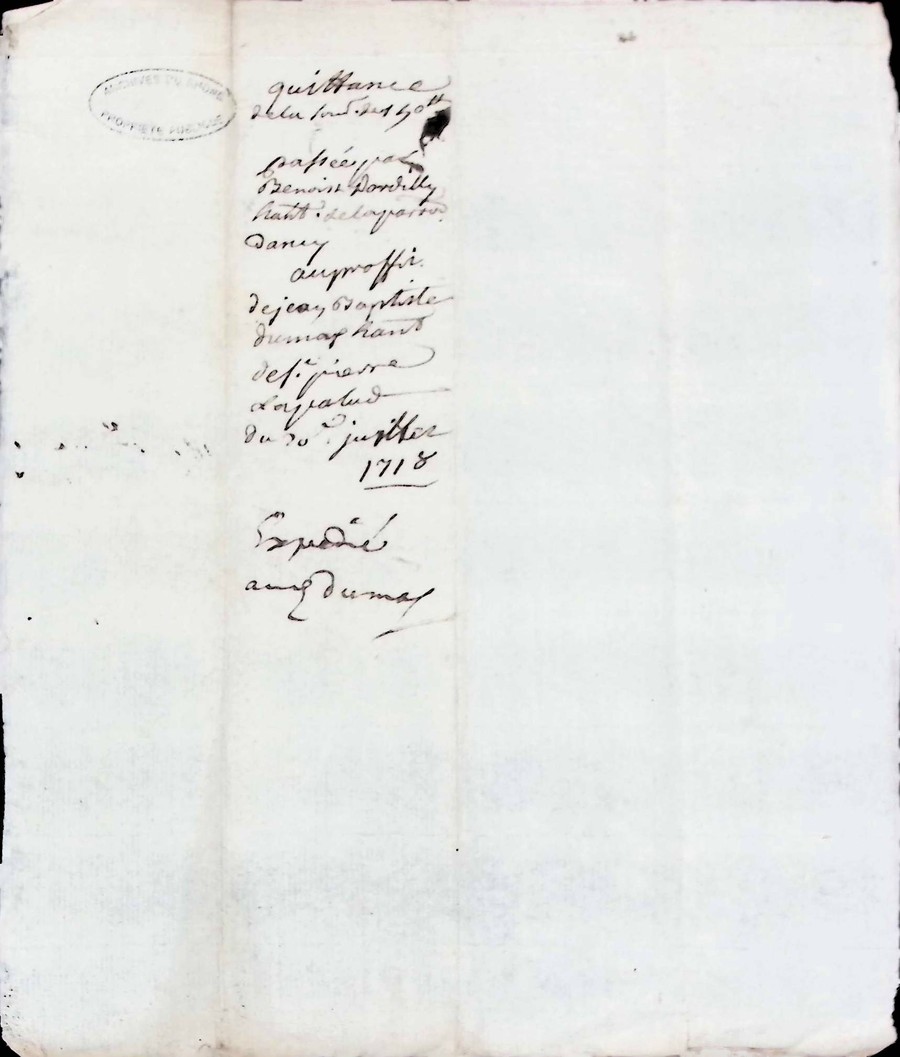 ARCHIVES DU RHONE
PROPRIÉTÉ PUBLIQUE
quittance
de la som.e de 150 tt
passée par
Benoist Dardilly
hant. de la parr.
Dancy
au proffit
de jean Baptiste
dumas hant
de st. pierre
Lapalud
du 30e. juillet
1718
Expedié
aud dumas